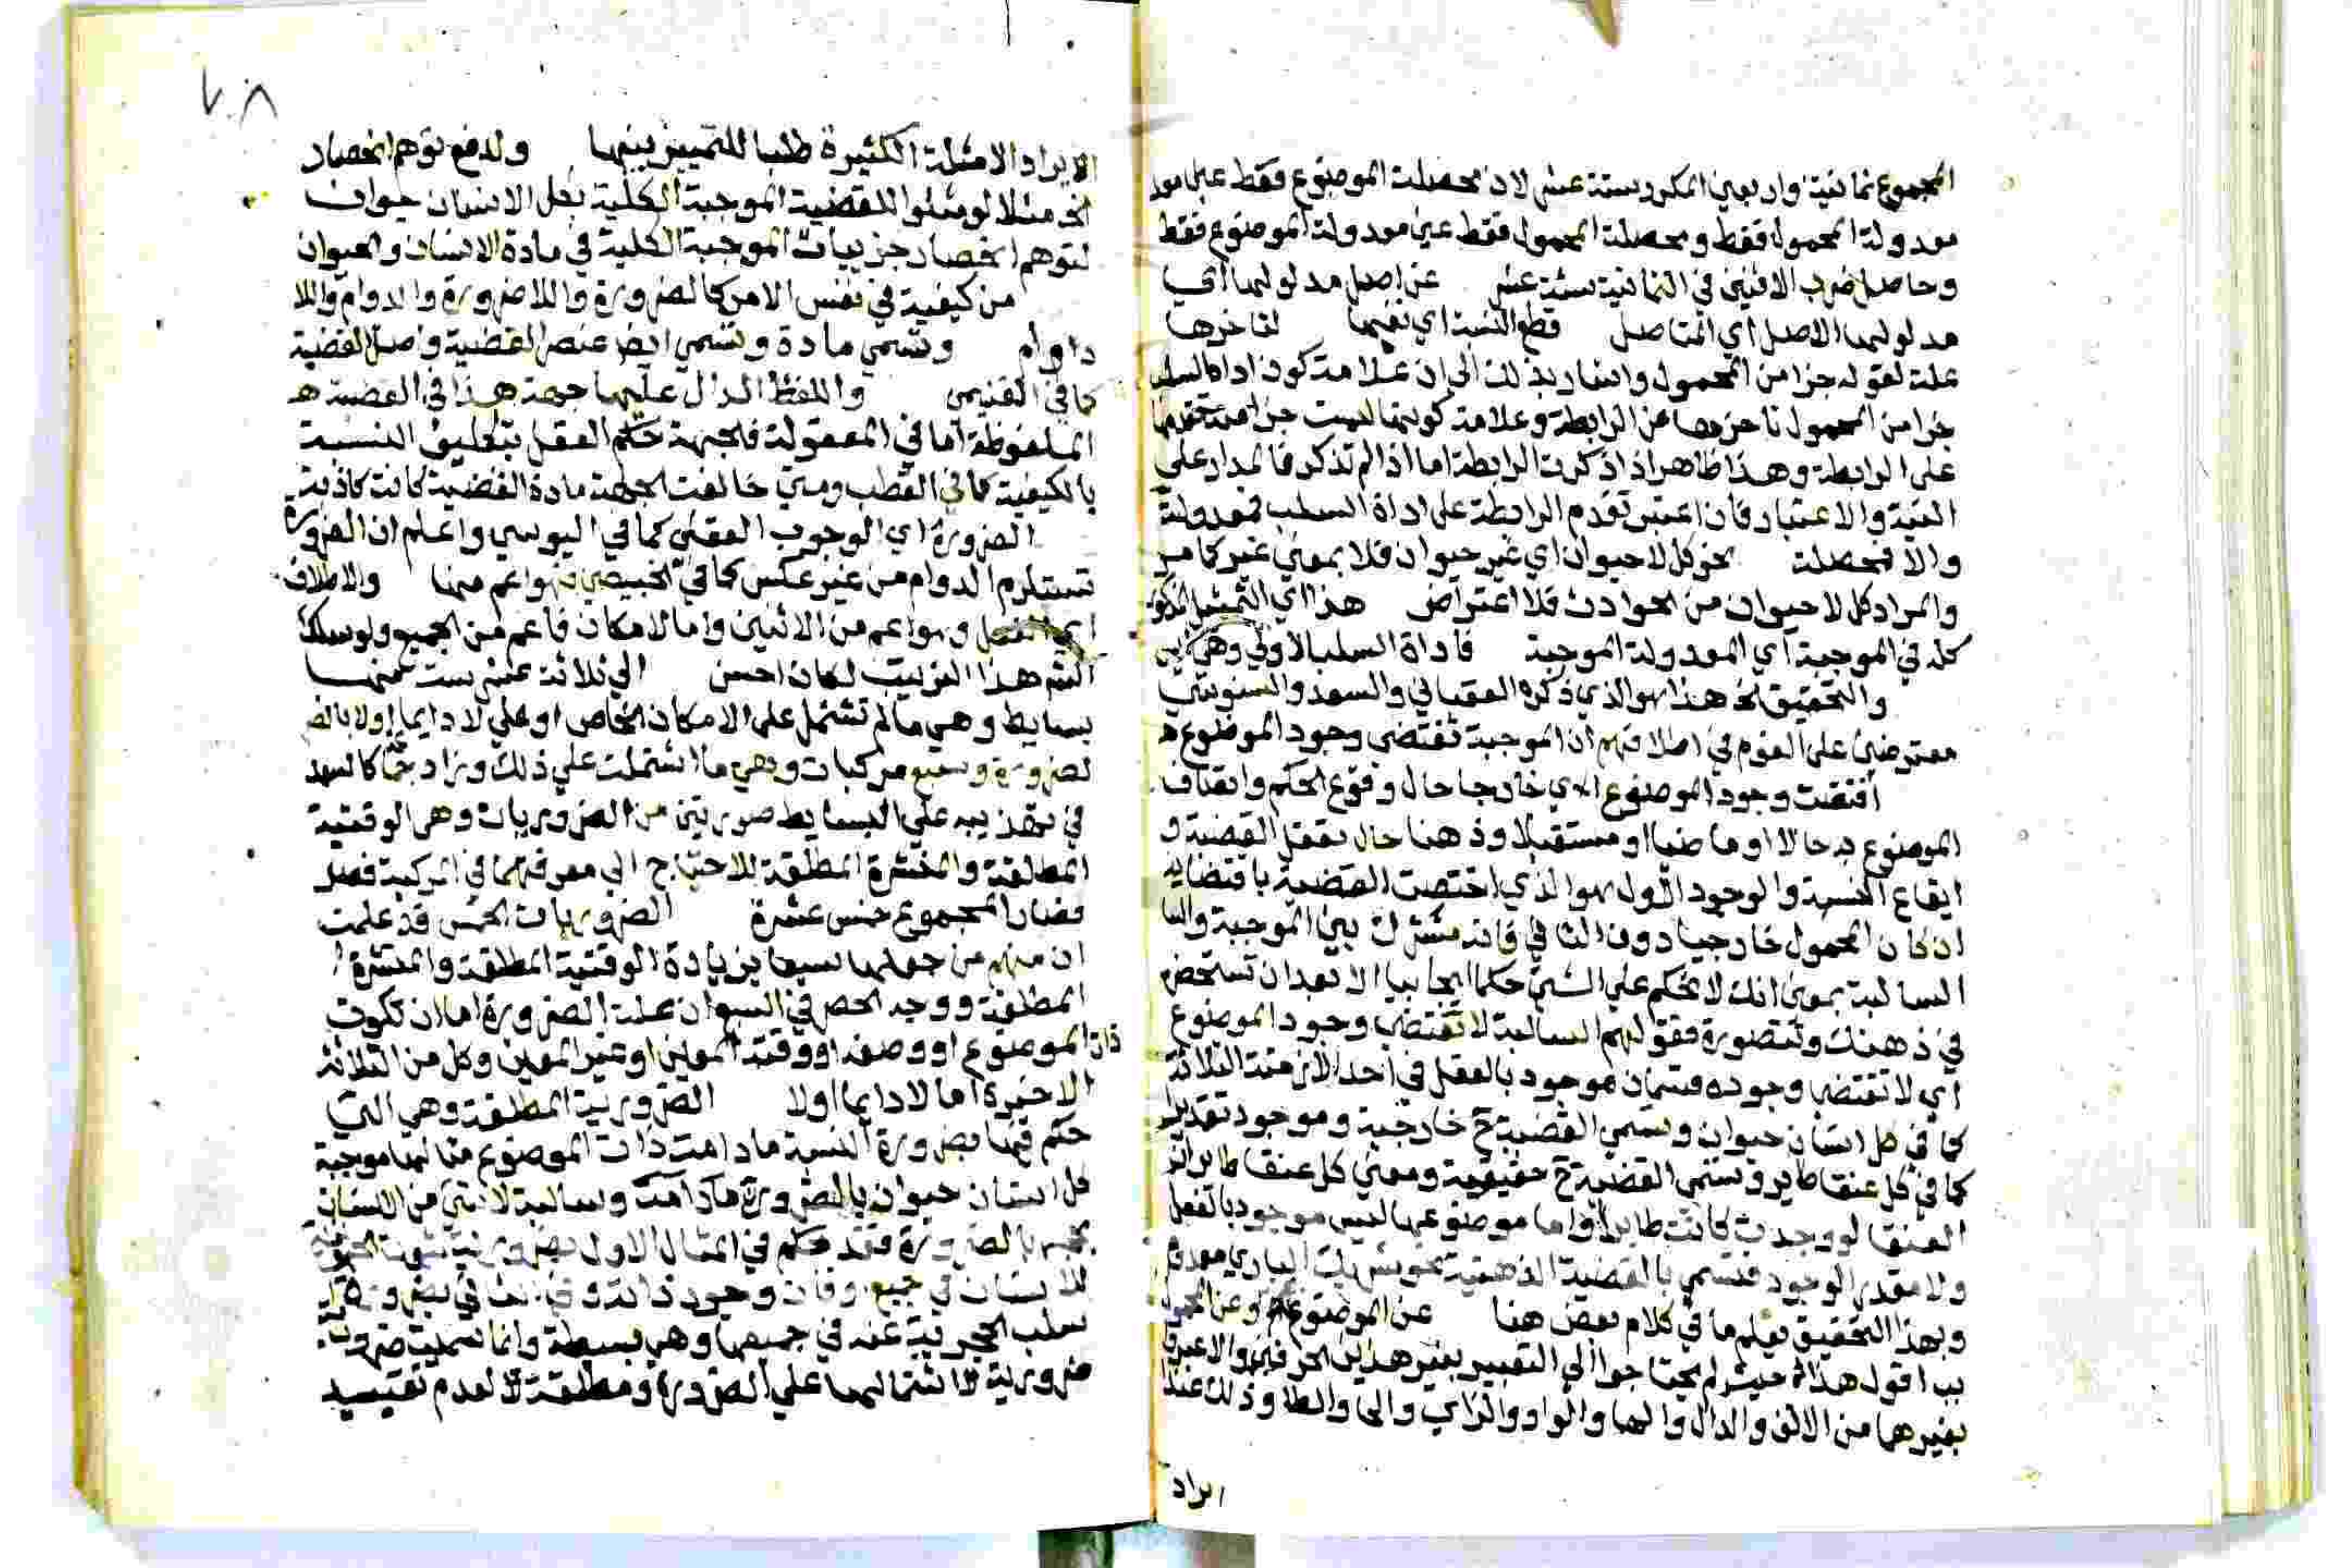 المجموع ثمانية واربعين المكرر ستة عشر لان محصلة الموضوع فقط عين معد
معدولة المحمول فقط ومحصلة المحمول فقط عين معدولة الموضوع فقط
وحاصل ضرب الاثنين في الثمانية ستة عشر عن اصل مدلولها اي
مدلولها الاصل اي المتاصل قطع النسبة اي نفيها لتاخرها
علة لقوله جزا من المحمول واشار بذلك الى ان علامة كون اداة السلب
جزا من المحمول تاخرها عن الرابطة وعلامة كونها ليست جزا منه تقدمها
على الرابطة وهذا ظاهر اذا ذكرت الرابطة اما اذا لم تذكر فالمدار على
النية والاعتبار فان اعتبر تقدم الرابطة على اداة السلب فمعدولة
والا فمحصلة نحو كل لا حيوان اي غير حيوان فلا بمعنى غير كما مر
والمراد كل لا حيوان من الحوادث فلا اعتراض هذا اي التمثيل المذكور
كله في الموجبة اي المعدولة الموجبة فاداة السلب الاولى وهي
والتحقيق الخ هذا هو الذي ذكره العقباني والسعد والسنوسي
معترضين على القوم في اطلاقهم ان الموجبة تقتضي وجود الموضوع
اقتضت وجود الموضوع اي خارجا حال وقوع الحكم واتصاف
الموضوع به حالا او ماضيا او مستقبلا وذهنا حال تعقل القضية و
ايقاع النسبة والوجود الاول هو الذي اختصت القضية باقتضايه
ان كان المحمول خارجيا دون الثاني فانه مشترك بين الموجبة والسا
السالبة بمعنى انك لا تحكم على الشي حكما ايجابيا الا بعد ان تستحضره
في ذهنك وتتصوره فقولهم السالبة لا تقتضي وجود الموضوع
اي لا تقتضي وجوده موجود بالفعل في احد الازمنة الثلاثة
كما في كل انسان حيوان وتسمى القضية ح خارجية وموجود تقديرا
كما في كل عنقا طاير وتسمى القضية ح حقيقية ومعنى كل عنقا طاير ان
العنقا لو وجدت كانت طايرا واما موضوعها ليس موجود بالفعل
ولا مقدر الوجود فتسمى بالقضية الذهنية نحو شريك الباري معدوم
وبهذا التحقيق يعلم ما في كلام بعض هنا عن الموضوع وعن المحمول
بب اقول هذا حيث لم يحتاجوا الى التعبير بغير هذين الحرفين والا عبروا
بغيرهما من الالف والدال والها والواو والزاي والحا والطا وذلك عند
ايراد
٧٠٨
الايراد الامثلة الكثيرة طلبا للتمييز بينها ولدفع توهم انحصار
الخ مثلا لو مثلوا للقضية الموجبة الكلية بكل الانسان حيوان
لتوهم انحصار جزييات الموجبة الكلية في مادة الانسان والحيوان
من كيفية في نفس الامر كالضرورة واللاضرورة والدوام واللا
داوام وتسمى مادة وتسمى ايض عنصر القضية واصل القضية
كما في واللفظ الدال عليها جهة هذا في القضية
الملفوظة اما في المعقولة فالجهة حكم العقل بتعليق النسبة
بالكيفية كما في القطب ومتى خالفت الجهة مادة القضية كانت كاذبة
الضرورة اي الوجوب العقلي كما في اليوسي واعلم ان الضرورة
تستلزم الدوام من غير عكس كما في الخبيصي فهو اعم منها والاطلاق
اي الفعل وهو اعم من الاثنين واما الامكان فاعم من الجميع ولو سلك
الشم هذا الترتيب لكان احسن الى ثلاثة عشر ست منها
بسايط وهي ما لم تشتمل على الامكان الخاص او على لا دايما او لا بالض
لضرورة وسبع مركبات وهي ما اشتملت على ذلك وزاد جما كالسعد
في تهذيبه على البسايط صورتين من الضروريات وهي الوقتية
المطالقة والمنتشرة المطلقة للاحتياج الى معرفتهما في المركبة فصل
فصار المجموع خمس عشرة الضروريات الخمس قد علمت
ان منهم من جعلها سبعا بزيادة الوقتية المطلقة والمنتشرة ا
المطلقة ووجه الحصر في السبع ان علة الضرورة اما ان تكون
ذات الموضوع او وصفه او وقته المعين او غير المعين وكل من الثلاثة
الاخيرة اما لا دايما او لا الضرورية المطلقة وهي التي
حكم فيها بضرورة النسبة ما دامت ذات الموضوع مثالها موجبة
كل انسان حيوان بالضرورة ما دامت وسالبة لا شي من الانسان
بحجر بالضرورة فقد حكم في المثال الاول بضرورية ثبوت
للانسان في جميع اوقات وجود ذاته وفي الثاني بضرورة
سلب الحجرية عنه في جميعها وهي بسيطة وانما سميت ضرورية
ضرورية لاشتمالها على الضرورة ومطلقة لعدم تقييد